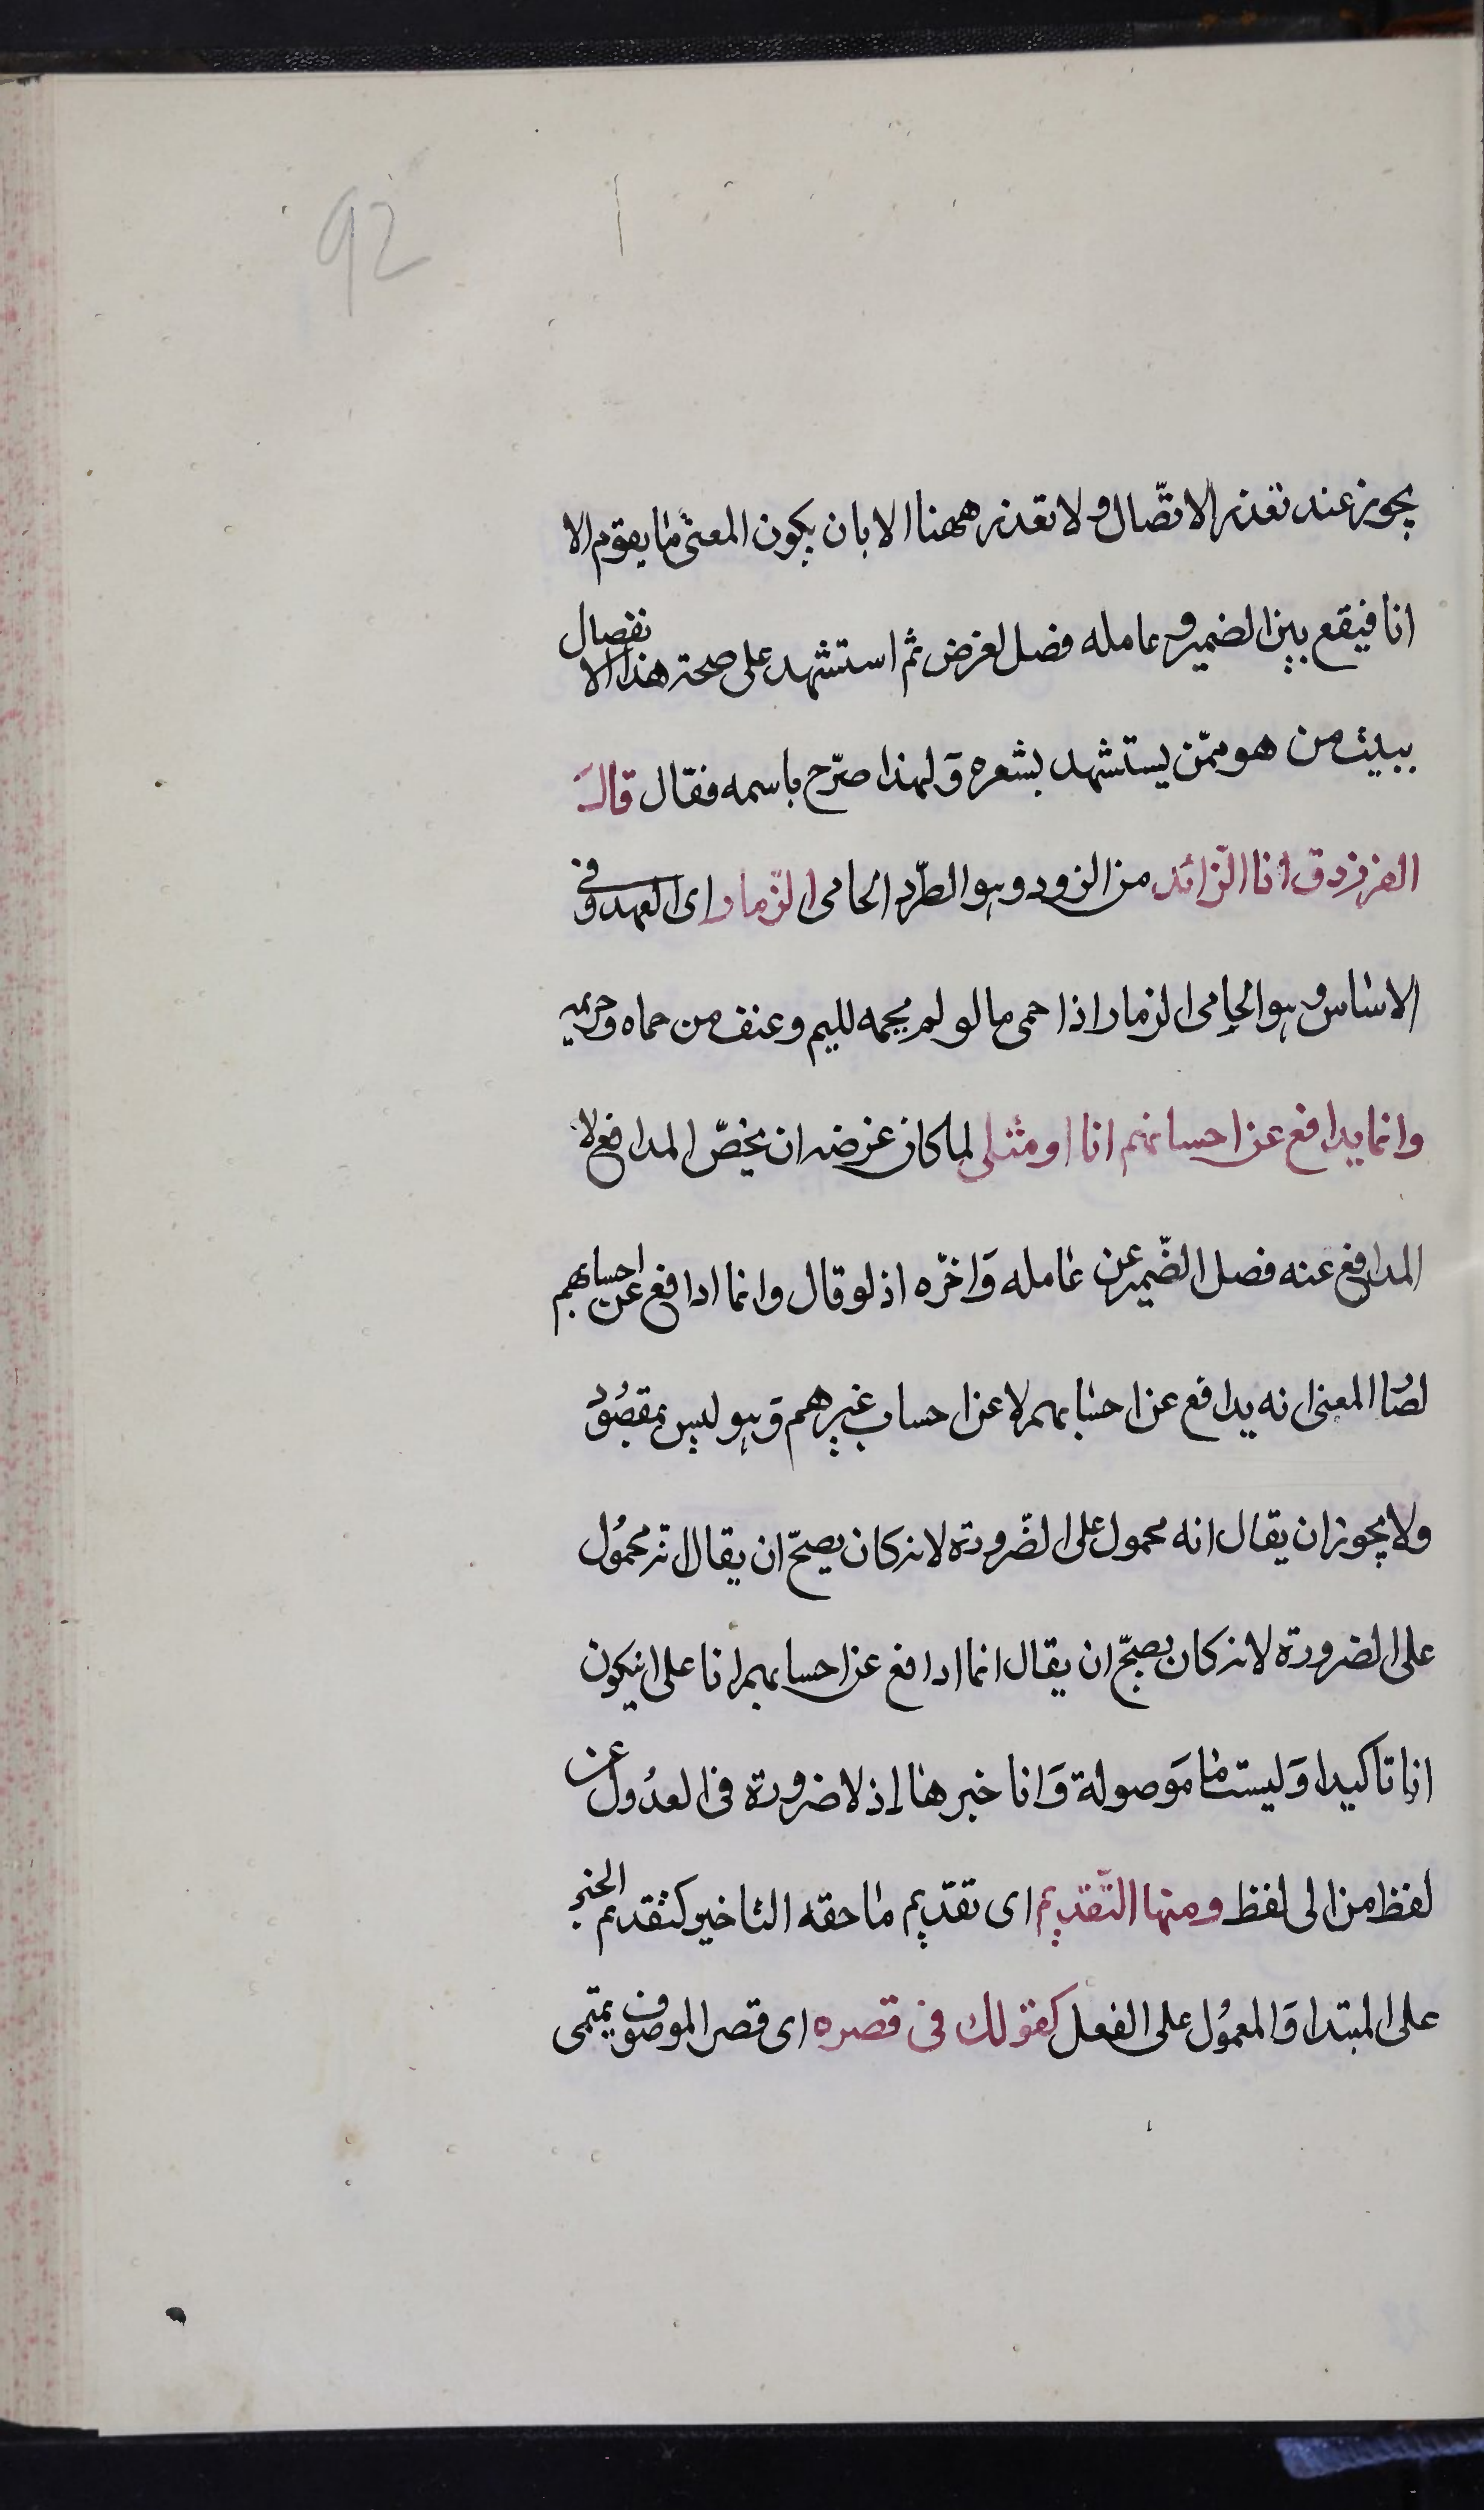 92
يجوز عند تعذر الاتّصال ولا تعذر ههنا الا بان يكون المعنى ما يقوم الا
انا فيقع بين الضمير وعامله فصل لغرض ثم استشهد على صحة هذا الانفصال
ببيت من هو ممّن يستشهد بشعره وَلهذا صرّح باسمه فقال قالَ
الفرزدق انا الزّائد من الزود وهو الطّرد الحامى الذّمار اى العهد وفى
الاساس وهو الحامى الذمار اذا حمى ما لو لم يحمه لليم وعنف من حماه وحريمه
وانما يدافع عن احسابهم انا او مثلى لما كان غرضه ان يخصّ المدافع لا
المدافع عنه فصل الضّمير عن عامله وَاخّره اذ لو قال وانما ادافع عن احسابهم
لصَا المعنى انه يدافع عن احسابهم لا عن احساب غيرهم وَهو ليس بمقصُوْد
ولا يجوز ان يقال انه محمول على الضّرورة لانه كان يصحّ ان يقال انه محمُول
على الضرورة لانه كان يصحّ ان يقال انما ادافع عن احسابهم انا على ان يكون
انا تاكيدا وَليست ما مَوصولة وَانا خبرها اذ لا ضرورة فى العدُول عن
لفظ من الى لفظ ومنها التّقديم اى تقدّيم ما حقه التاخير كتقديم الخبر
على المبتدا وَالمعمُول على الفعل كقولك فى قصره اى قصر الموصوف تميمى